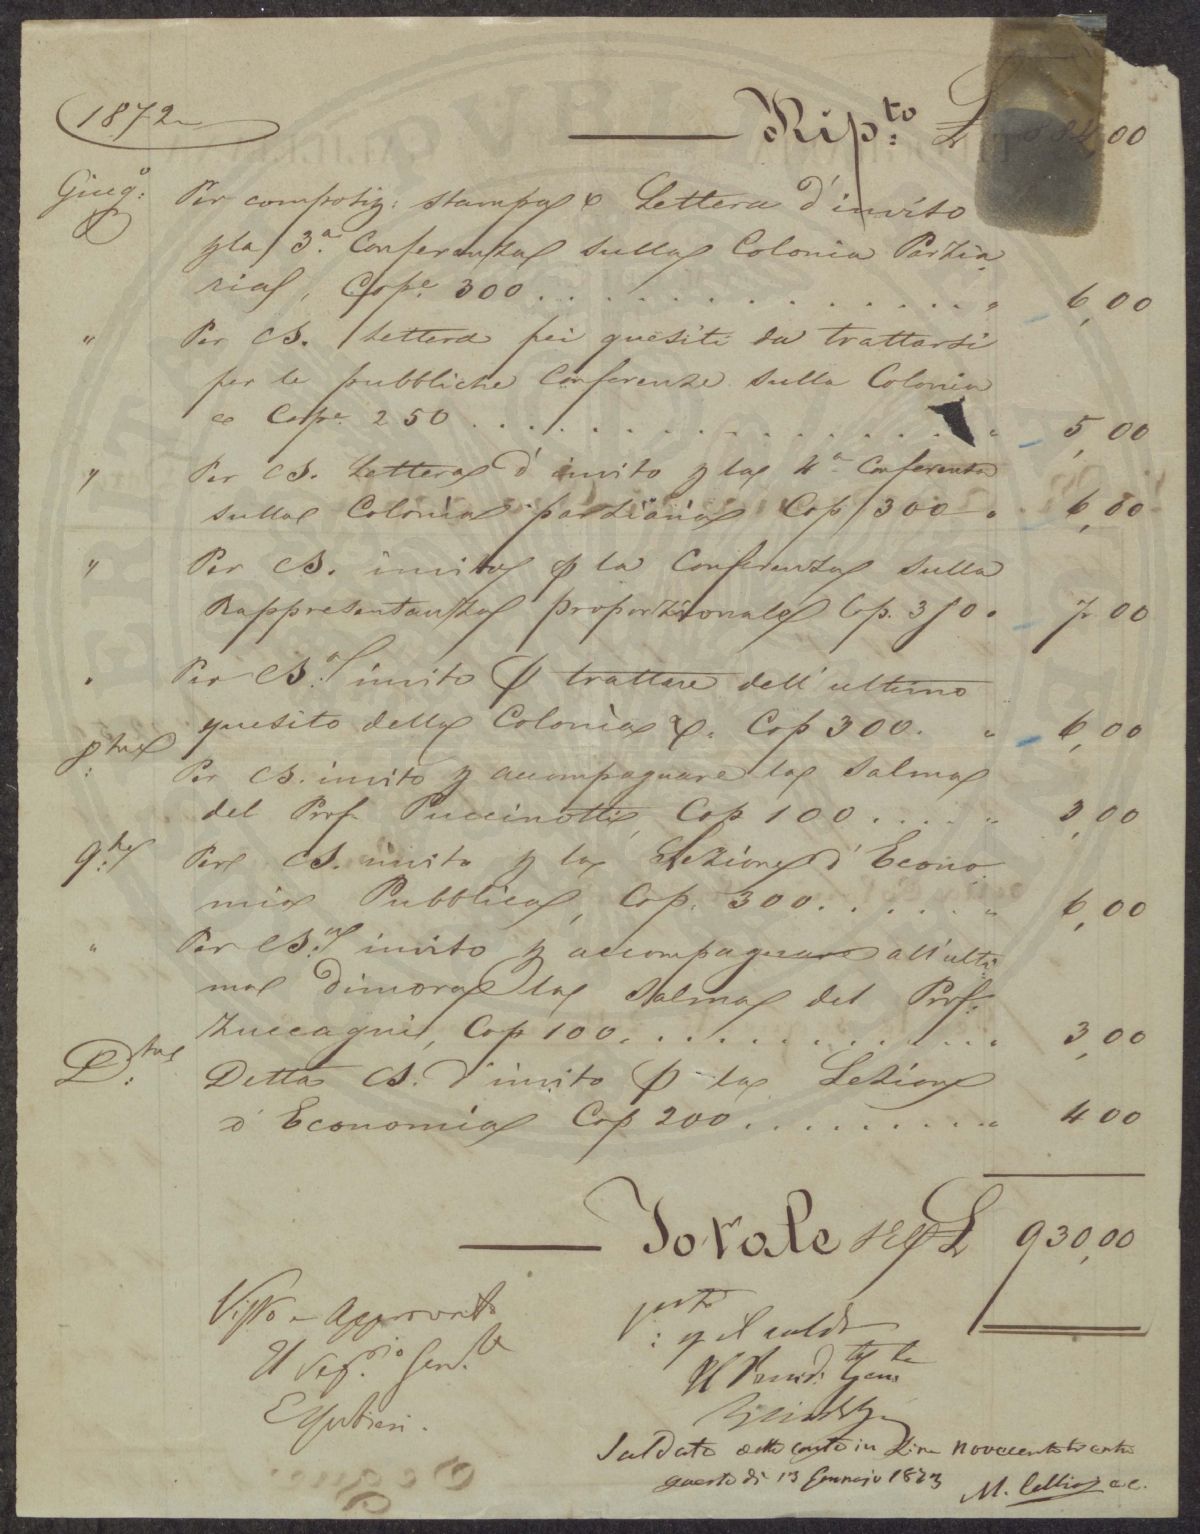 1872
Rip.to L 884,00
Giug.o Per composiz: stampa e Lettera d'invito
p la 3.a Conferenza sulla Colonia Parzia
ria, Cop.e 300 . . . . . . . . . . " 6,00
" Per CS. Lettera pei quesiti da trattarsi
per le pubbliche Conferenze sulla Colonia
Cop.e 250 . . . . . . . . . . " 5,00
" Per CS. Lettera d'invito p la 4.a Conferenza
sulla Colonia parziaria Cop 300 " 6,00
" Per CS. invito p la Conferenza sulla
Rappresentanza proporzionale Cop. 350 " 7,00
" Per CS. invito p trattare dell'ultimo
quesito della Colonia &. Cop 300. " 6,00
8.bre Per CS. invito p accompagnare la Salma
del Prof. Puccinotti, Cop 100 . . . . . " 3,00
9.bre Per CS. invito p la Lezione d'Econo
mia Pubblica, Cop. 300 . . . . . . " 6,00
" Per CS. invito p accompagnare all'ulti
ma dimora la Salma del Prof.
Zuccagni, Cop 100 . . . . . . . . . . " 3,00
D.bre Detta CS. d'invito p la Lezione
d'Economia Cop 200 . . . . . . . . . " 4 00
Totale L 930,00
Visto e Approvato
Il Seg.rio Gen.le
Visto
p il saldo
Il Presid.
Saldato detto conto in Lire Novecentotrenta
questo dì 13 Gennajo 1873
M.